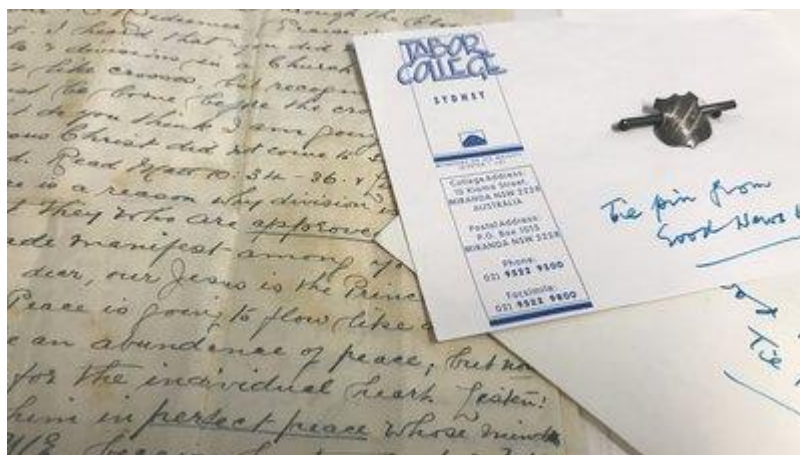 Redeemer Praise
I heard that you did
& divisions in a Church
like crosses, but recogn
be borne before the cro
do you think I am goin
ous Christ did not come to
Read Matt 10: 34 - 36. &
is a reason why division
they who are approve
ade manifest among yo
dear, our Jesus is the Princ
Peace is going to flow like a
an abundance of peace, but now
for the individual heart. Listen:
him in perfect peace whose mind
because
TABOR
COLLEGE
SYDNEY
College Address:
MIRANDA NSW 2228
AUSTRALIA
Postal Address:
P.O. Box 1015
MIRANDA NSW 2228
Phone:
(02) 9522 9500
Facsimile:
(02) 9522 9800
Tie pin from
Good News
Tie